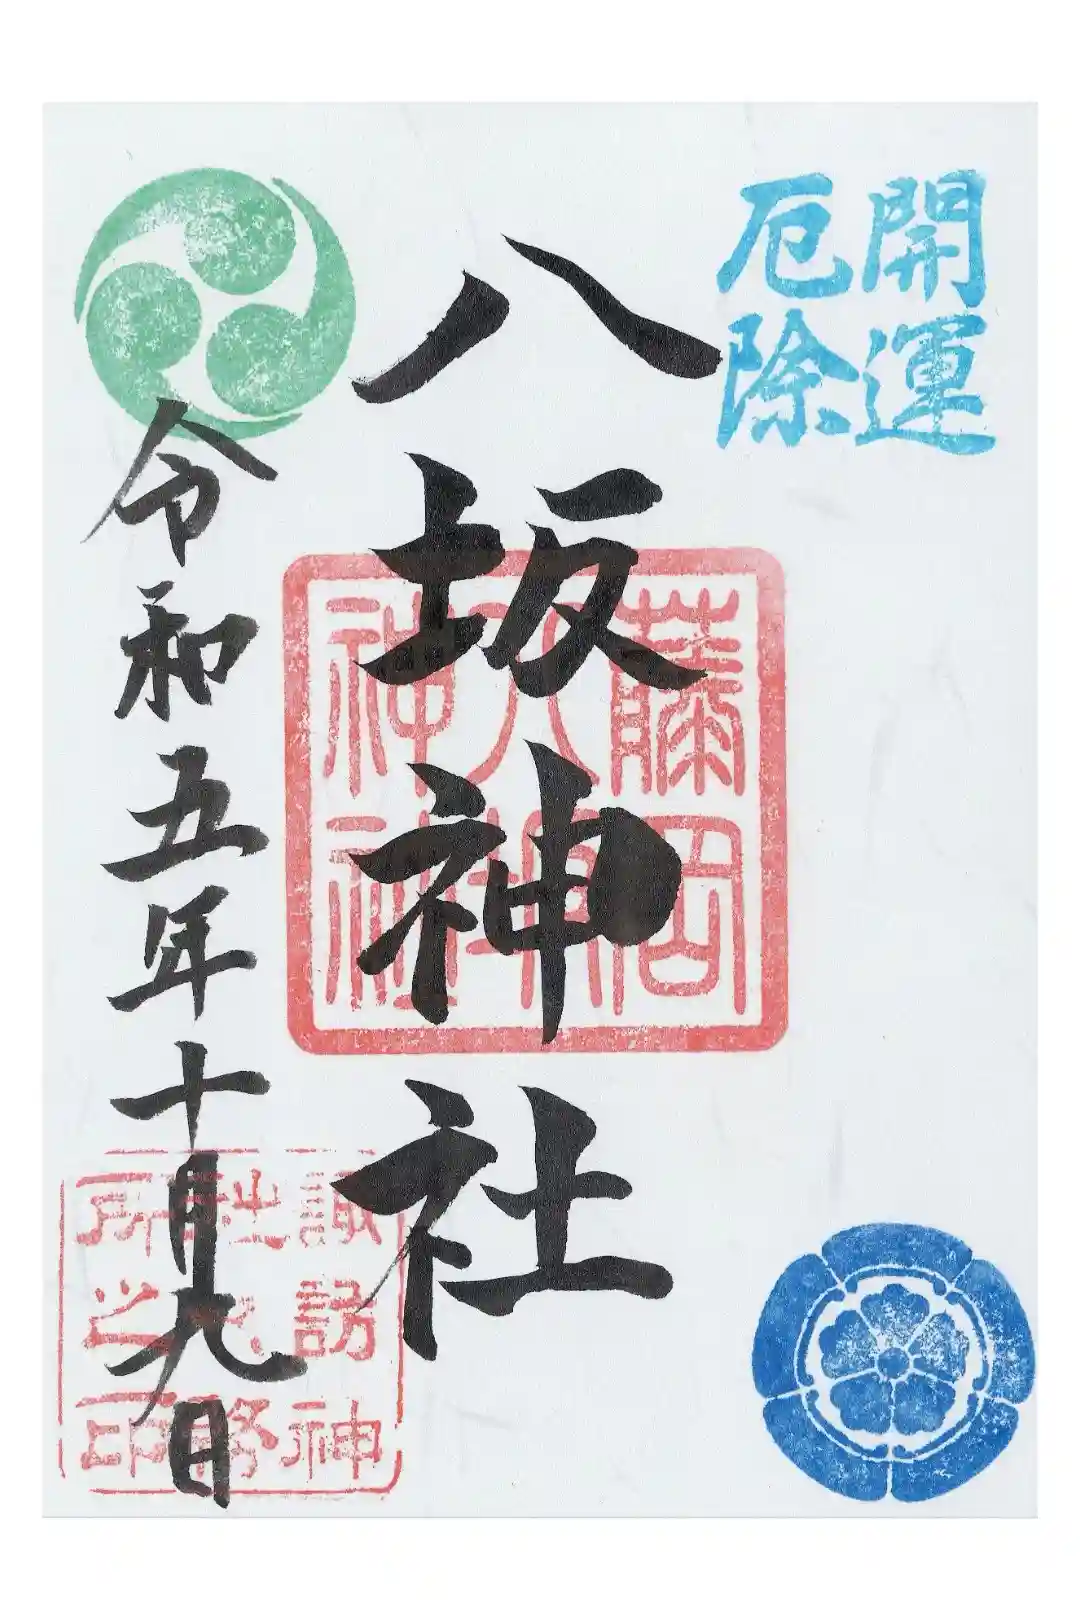 開運
厄除
八坂神社
藤岡
八坂
神社
令和五年十月九日
諏訪神
社務
所之印